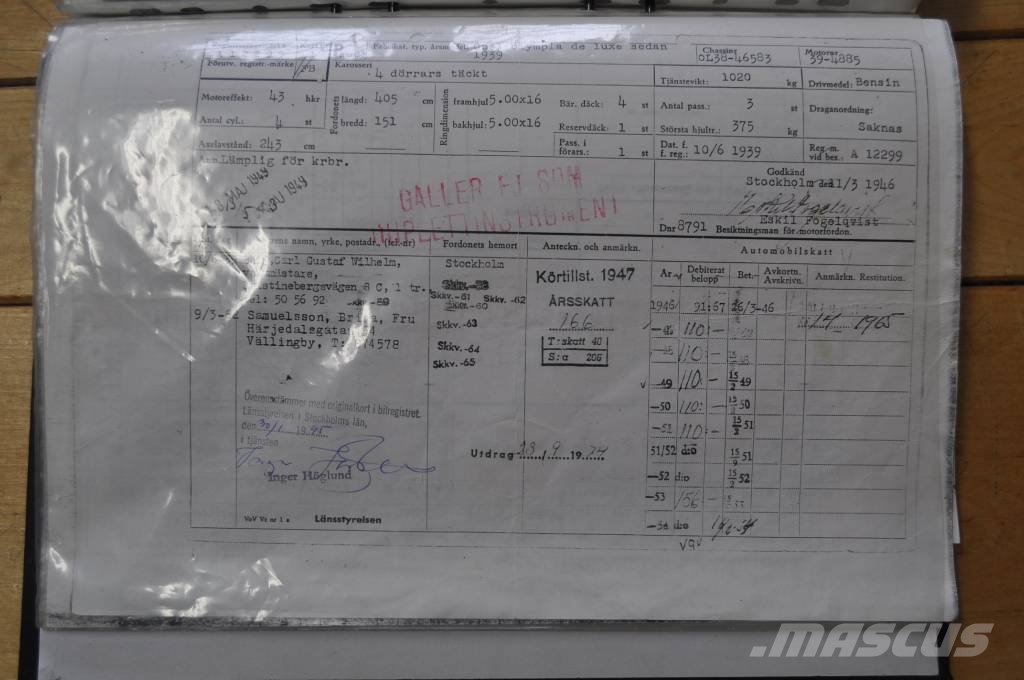 Fabrikat, typ, årsmodell
Olympia de luxe sedan
1939
Chassinr
OL38-46583
Motornr
39-4885
Förutv. registr.-märke
Karosseri
4 dörrars täckt
Tjänstevikt: 1020 kg
Drivmedel: Bensin
Motoreffekt: 43 hkr
Fordonets längd: 405 cm
Ringdimension framhjul 5.00x16
Bär. däck: 4 st
Antal pass.: 3 st
Draganordning:
Saknas
Antal cyl.: 4 st
bredd: 151 cm
bakhjul: 5.00x16
Reservdäck: 1 st
Största hjultr.: 375 kg
Axelavstånd: 243 cm
Pass. i förars.: 1 st
Dat. f. f. reg.: 10/6 1939
Reg.-m. vid bes.: A 12299
Lämplig för krbr.
GÄLLER EJ SOM
DUPLETTINSTRUMENT
Godkänd
Stockholm den 11/3 1946
Eskil Fogelqvist
Dnr 8791 Besiktningsman för motorfordon.
namn, yrke, postadr., (tel.-nr)
Fordonets hemort
Anteckn. och anmärkn.
Automobilskatt
Carl Gustaf Wilhelm,
8 C, 1 tr.
Tel: 50 56 92
9/3-64 Samuelsson, Britta, Fru
Härjedalsgatan
Vällingby, T:
Stockholm
Skkv.-61
Skkv.-62
Skkv.-60
Skkv.-63
Skkv.-64
Skkv.-65
Körtillst. 1947
ÅRSSKATT
166
T:skatt 40
S:a 206
Utdrag 28/9 1974
År
Debiterat belopp
Bet.
Avkortn. Avskrivn.
Anmärkn. Restitution.
1946 91:67 26/3-46
1965
110:-
110:-
-49 110:- 15/2 49
-50 110:- 15/2 50
-51 110:- 15/2 51
51/52 d:o 15/9 51
-52 d:o 15/2 52
-53 156:-
-54 d:o
Överensstämmer med originalkort i bilregistret.
Länsstyrelsen i Stockholms län,
den 30/1 1995
i tjänsten
Inger Höglund
VoV Vr nr 1 a
Länsstyrelsen
MASCUS